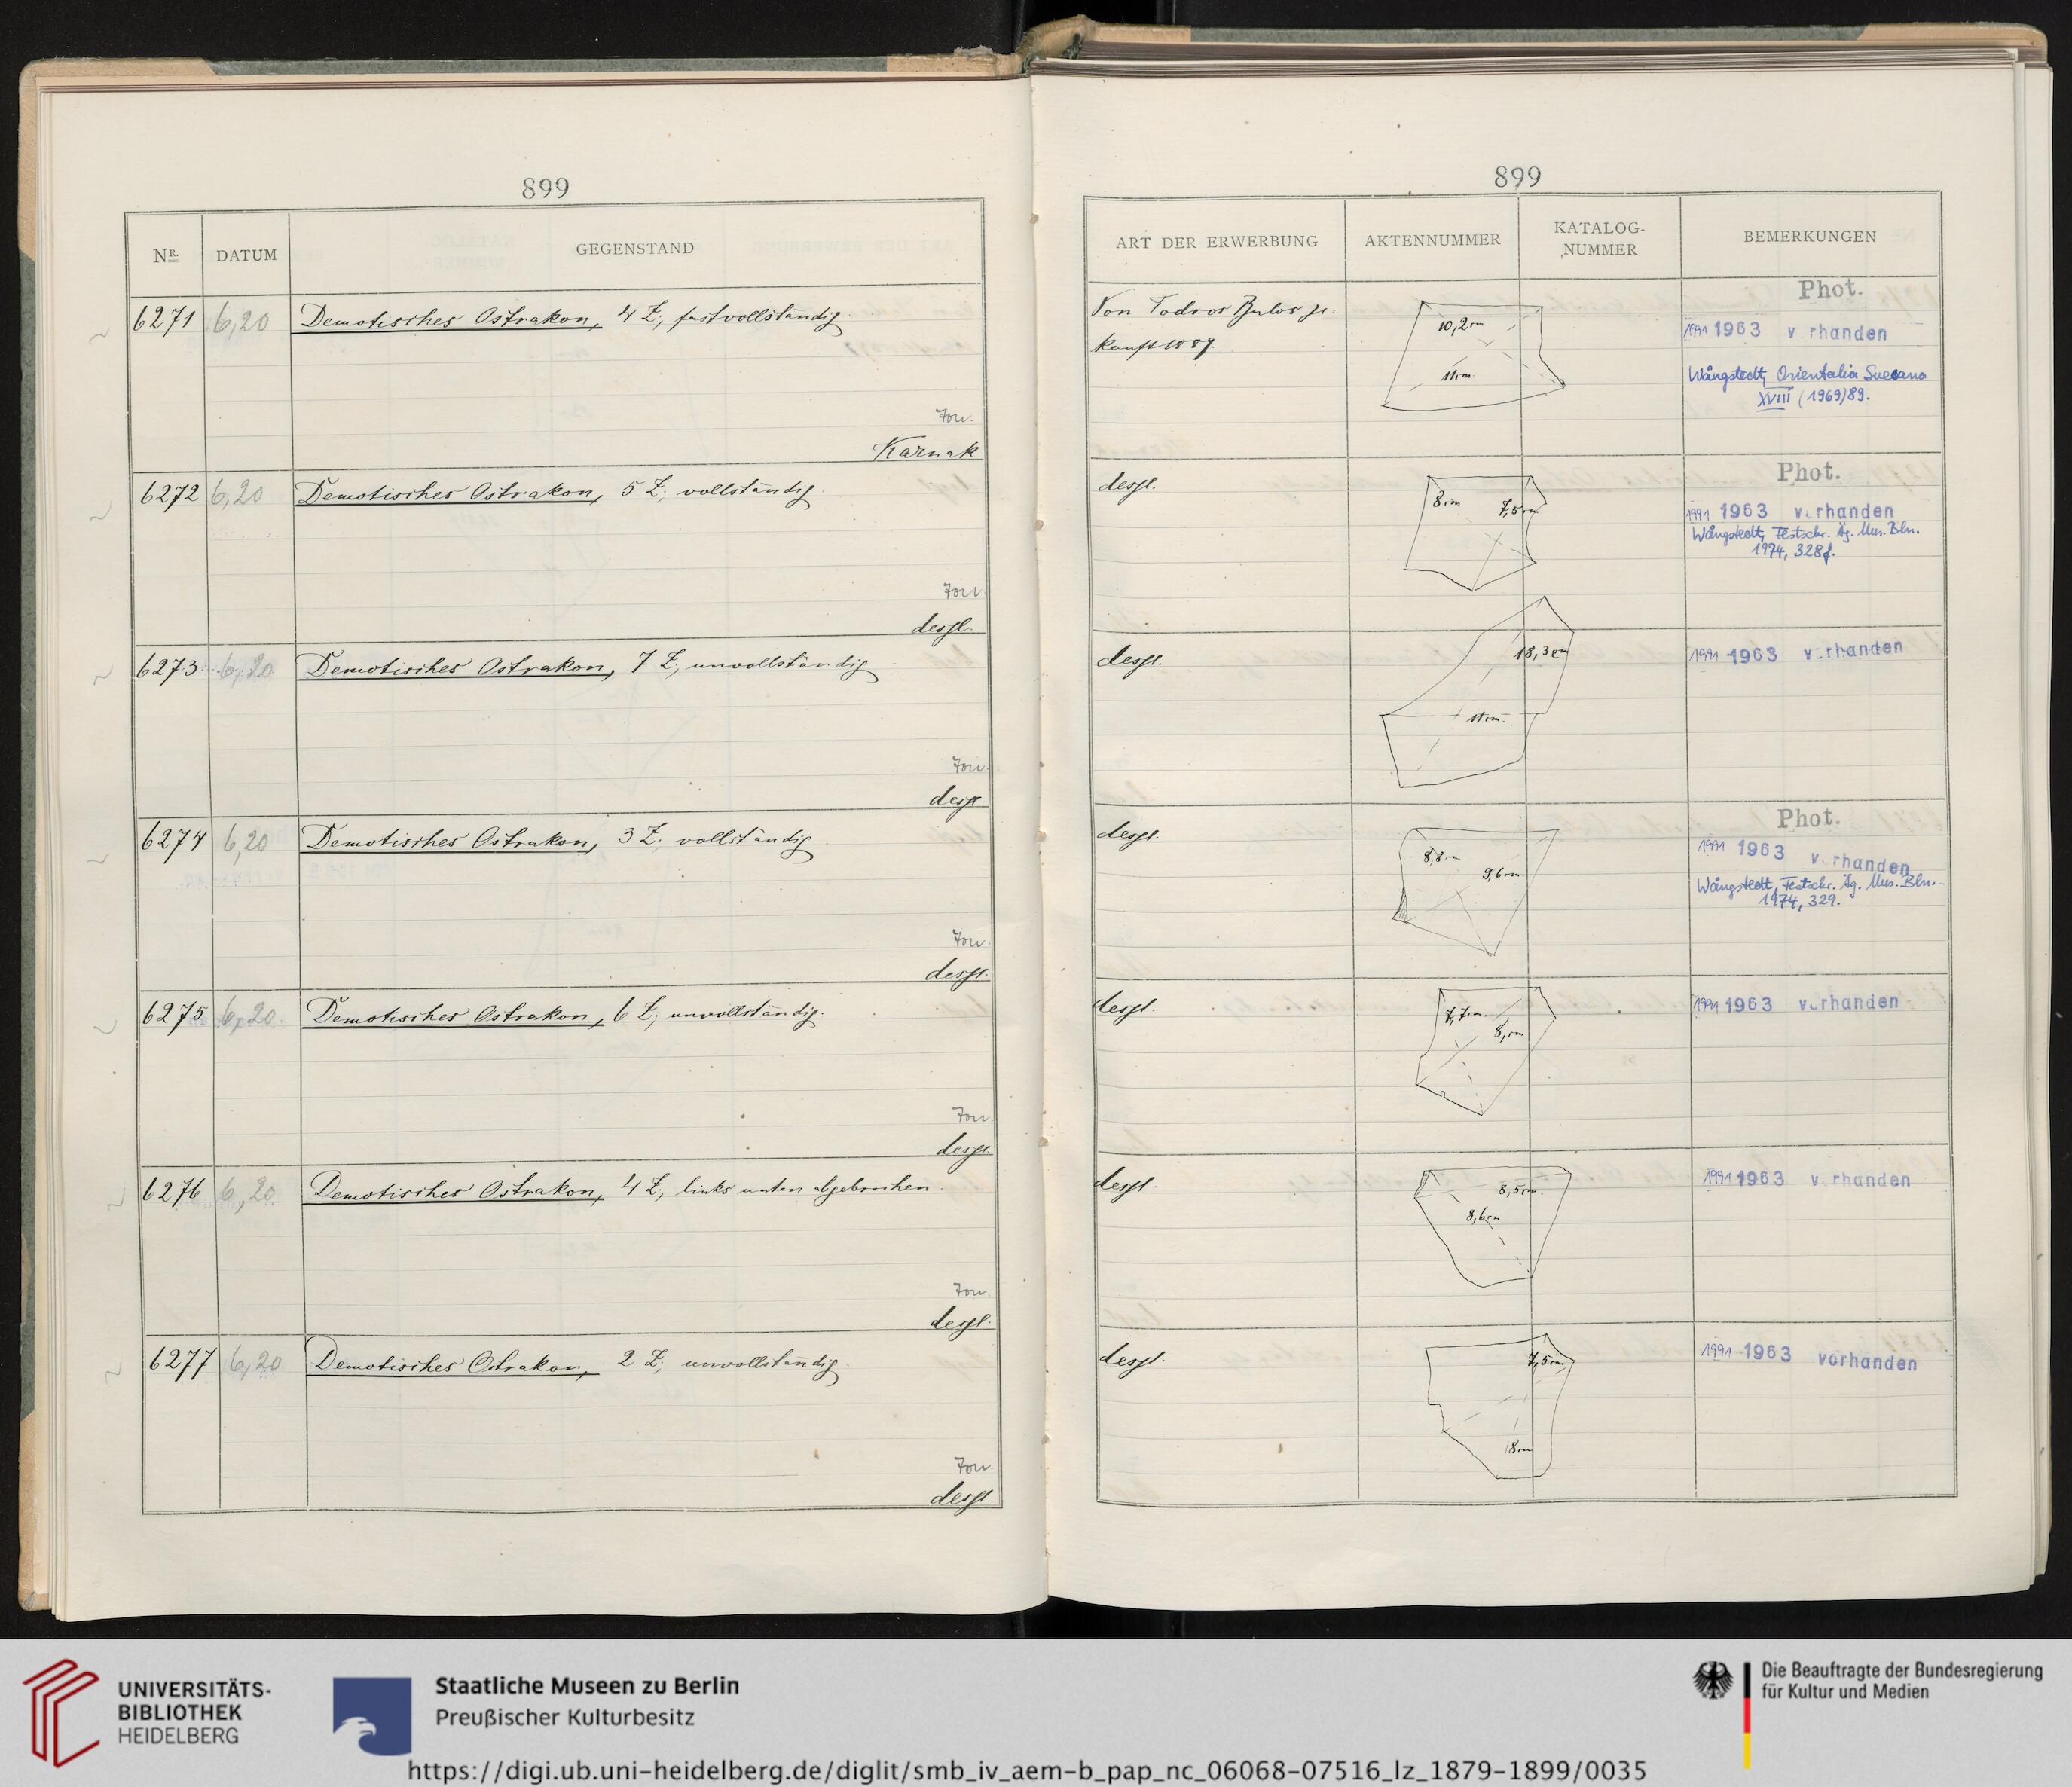 899
NR. DATUM GEGENSTAND
6271 6,20 Demotisches Ostrakon, 4 Z., fast vollständig.
Ton.
Karnak
6272 6,20 Demotisches Ostrakon, 5 Z., vollständig.
Ton
desgl.
6273 6,20 Demotisches Ostrakon, 7 Z., unvollständig
Ton.
desgl
6274 6,20 Demotisches Ostrakon, 3 Z. vollständig
Ton.
desgl.
6275 6,20 Demotisches Ostrakon, 6 Z., unvollständig.
Ton.
desgl.
6276 6,20 Demotisches Ostrakon, 4 Z., links unten abgebrochen.
Ton.
desgl.
6277 6,20 Demotisches Ostrakon, 2 Z., unvollständig.
Ton.
desgl
899
ART DER ERWERBUNG AKTENNUMMER KATALOG-
NUMMER BEMERKUNGEN
Von Todros Bulos ge-
kauft 1887.
10,2 cm
11 cm
Phot.
1991 1963 vorhanden
Wångstedt, Orientalia Suecana
XVIII (1969) 89.
desgl.
8 cm 7,5 cm
Phot.
1991 1963 vorhanden
Wångstedt, Festschr. Äg. Mus. Bln.
1974, 328f.
desgl.
18,3 cm
11 cm.
1991 1963 vorhanden
desgl.
8,8 cm
9,6 cm
Phot.
1991 1963 vorhanden
Wångstedt, Festschr. Äg. Mus. Bln.
1974, 329.
desgl.
7,7 cm
8, cm
1991 1963 vorhanden
desgl.
8,5 cm
8,6 cm
1991 1963 vorhanden
desgl.
7,5 cm
8 cm
1991 1963 vorhanden
UNIVERSITÄTS-
BIBLIOTHEK
HEIDELBERG
Staatliche Museen zu Berlin
Preußischer Kulturbesitz
Die Beauftragte der Bundesregierung
für Kultur und Medien
https://digi.ub.uni-heidelberg.de/diglit/smb_iv_aem-b_pap_nc_06068-07516_lz_1879-1899/0035